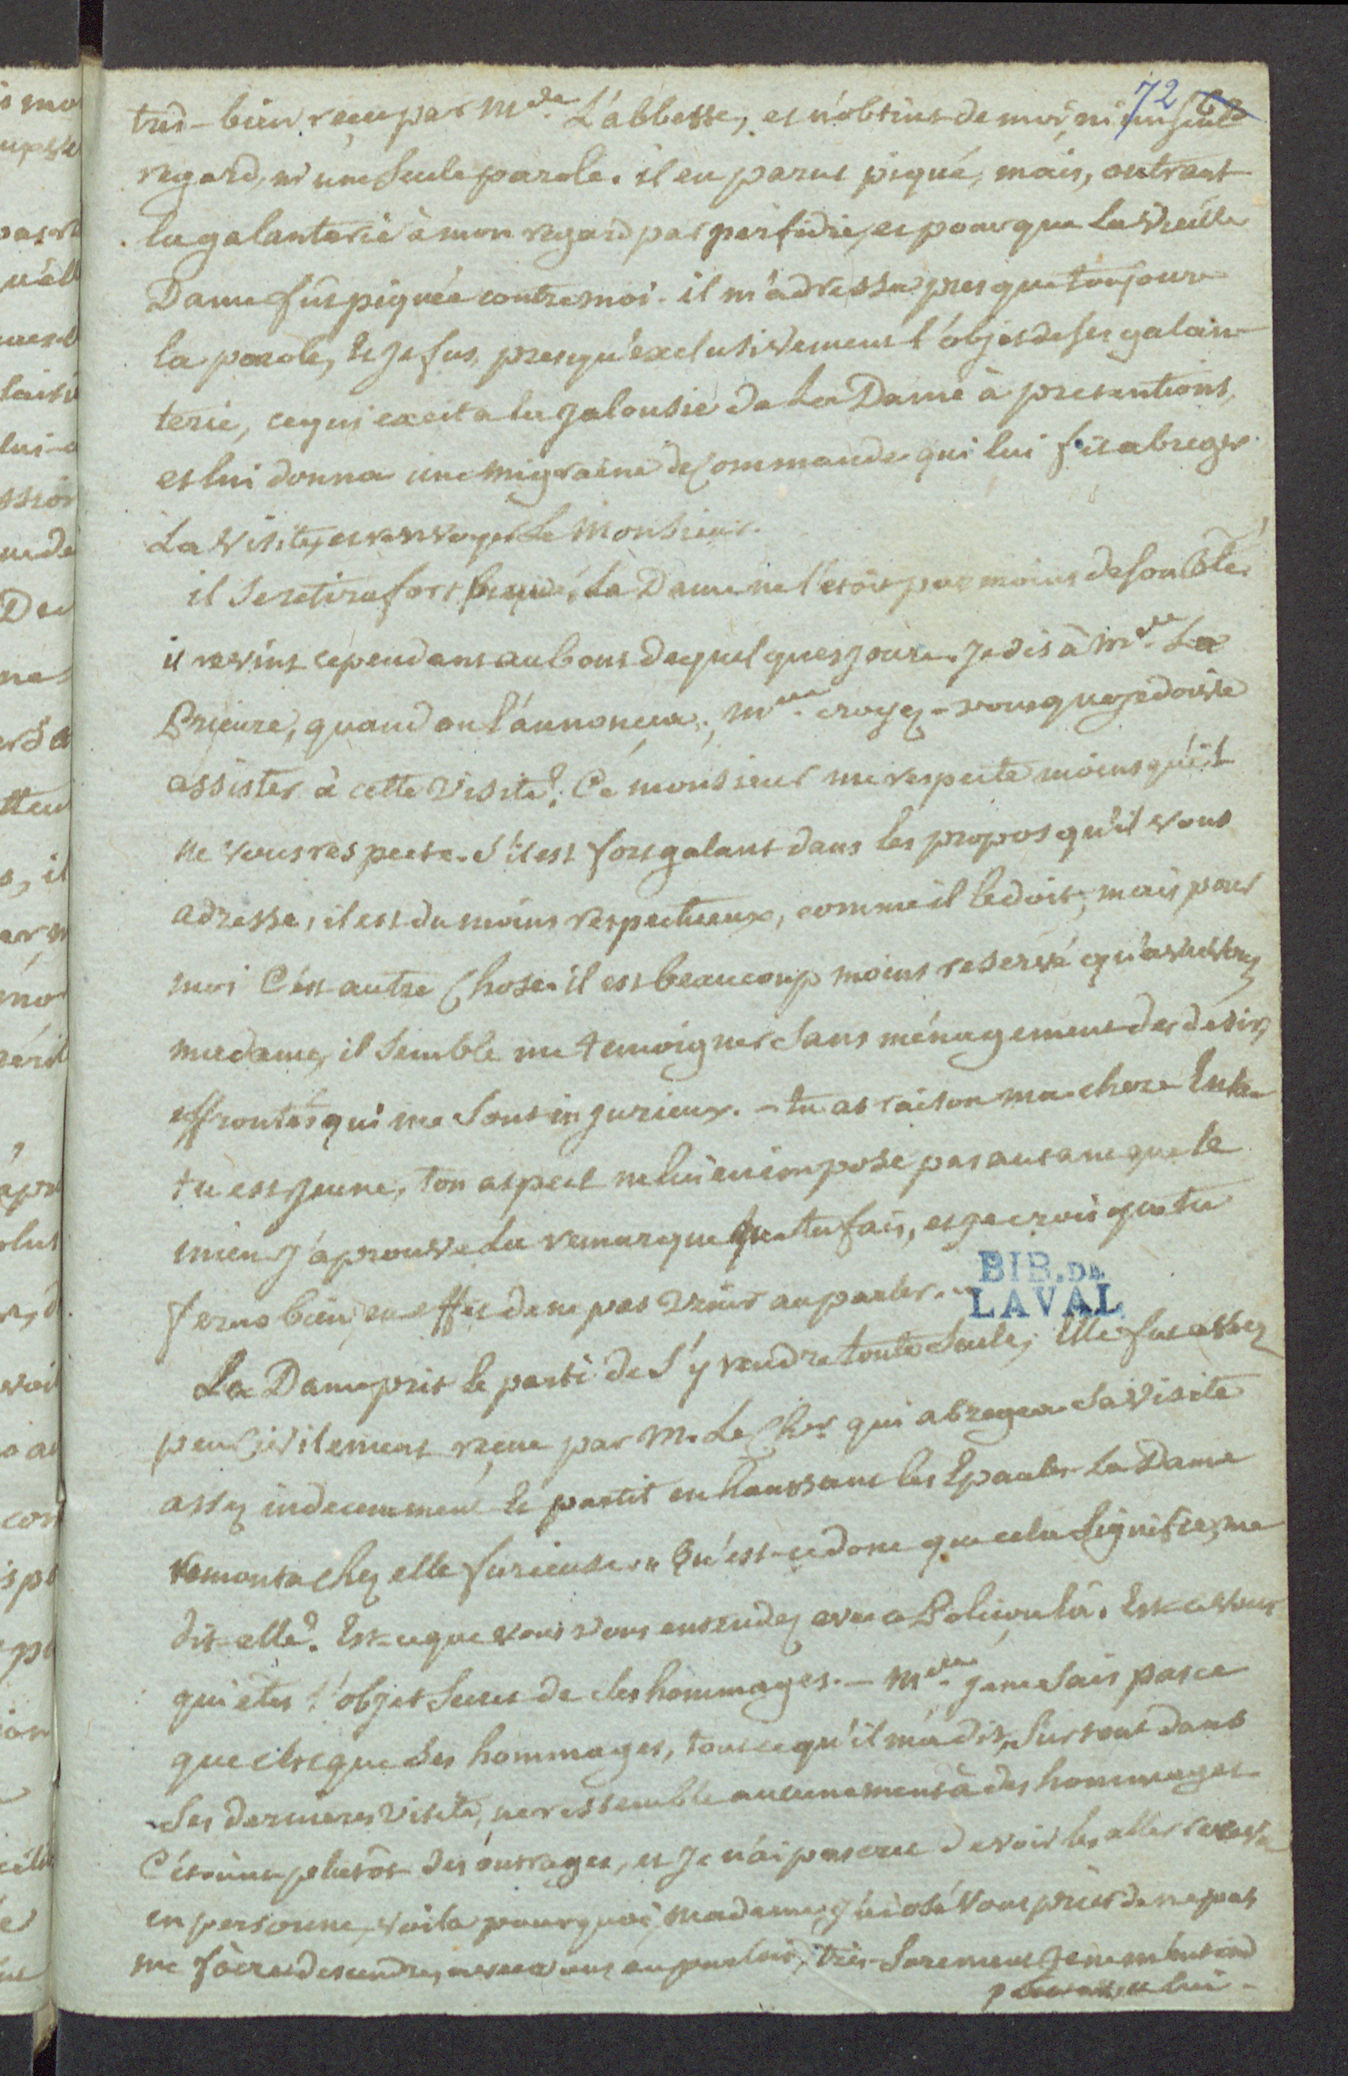 72
très-bien reçu par Mde. L'abbesse, et n'obtint de moi, ni un seul
regard, ni une seule parole. il en parut piqué, mais, outrant
la galanterie à mon regard par perfidie, et pour que la vieille
Dame fut piquée contre moi. il m'adressa presque toujours
la parole, et je fus, presqu'exclusivement l'objet de ses galan-
terie, ce qui excita la jalousie de La Dame à pretentions,
et lui donna une migraine de Commande qui lui fit abreger
La visite, et renvoyer Le Monsieur.
il se retira fort piqué, La Dame ne l'etoit pas moins de son Côté.
il revint cependant au bout de quelques jours. Je dis à Mde. La
Prieure, quand on l'annonça; Mde. croyez-vous que je doive
assister à cette visite? Ce monsieur me respecte moins qu'il
ne vous respecte. s'il est fort galant dans les propos qu'il vous
adresse, il est du moins respectueux, comme il le doit; mais pour
moi C'est autre Chose. il est beaucoup moins reservé qu'avec vous
madame, il semble me temoigner sans ménagement des desirs
effrontés qui me sont injurieux. - tu as raison ma chere
tu est jeune, ton aspect ne lui en impose pas autant que le
mien j'aprouve la remarque que tu fais, et je crois que tu
feras bien, en effet de ne pas venir au parler..
BIB. DE
LAVAL
La Dame prit le parti de s'y rendre toute seule; Elle fut assez
peu Civilement reçue par M. Le Cher. qui abregea sa visite
assez indecemment Et partit en haussant les Epaules La Dame
remonta chez elle furieuse. " Qu'est-ce donc que cela signifie, me
dit-elle? Est-ce que vous vous entendez avec ce Polisson là. Est-ce vous
qui etes l'objet secret de ses hommages. - Mde. je ne sais pas ce
que c'est que des hommages, tout ce qu'il m'a dit, surtout dans
Ses dernieres visite, ne ressemble aucunement à des hommages
C'étoient plutôt des outrages, et je n'ai pas cru devoir les aller
en personne, voila pourquoi, madame, j'ai osé vous prier de ne pas
me faire descendre avec vous au parloir, très-surement je ne m'entend
pas avec lui.